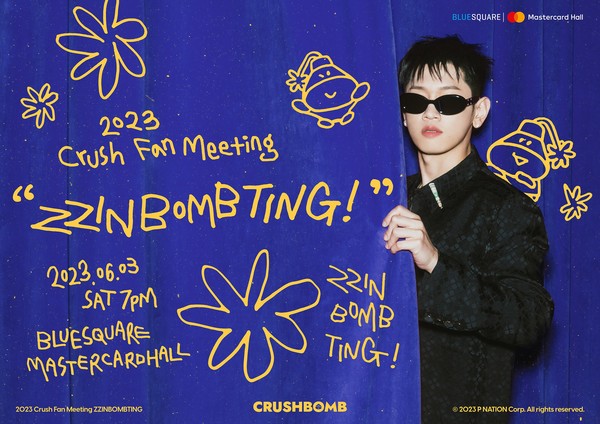 BLUESQUARE | Mastercard Hall
2023
Crush Fan Meeting
“ZZINBOMBTING!”
2023.06.03
SAT 7PM
BLUESQUARE
MASTERCARDHALL
ZZIN
BOMB
TING!
2023 Crush Fan Meeting ZZINBOMBTING
CRUSHBOMB
© 2023 P NATION Corp. All rights reserved.